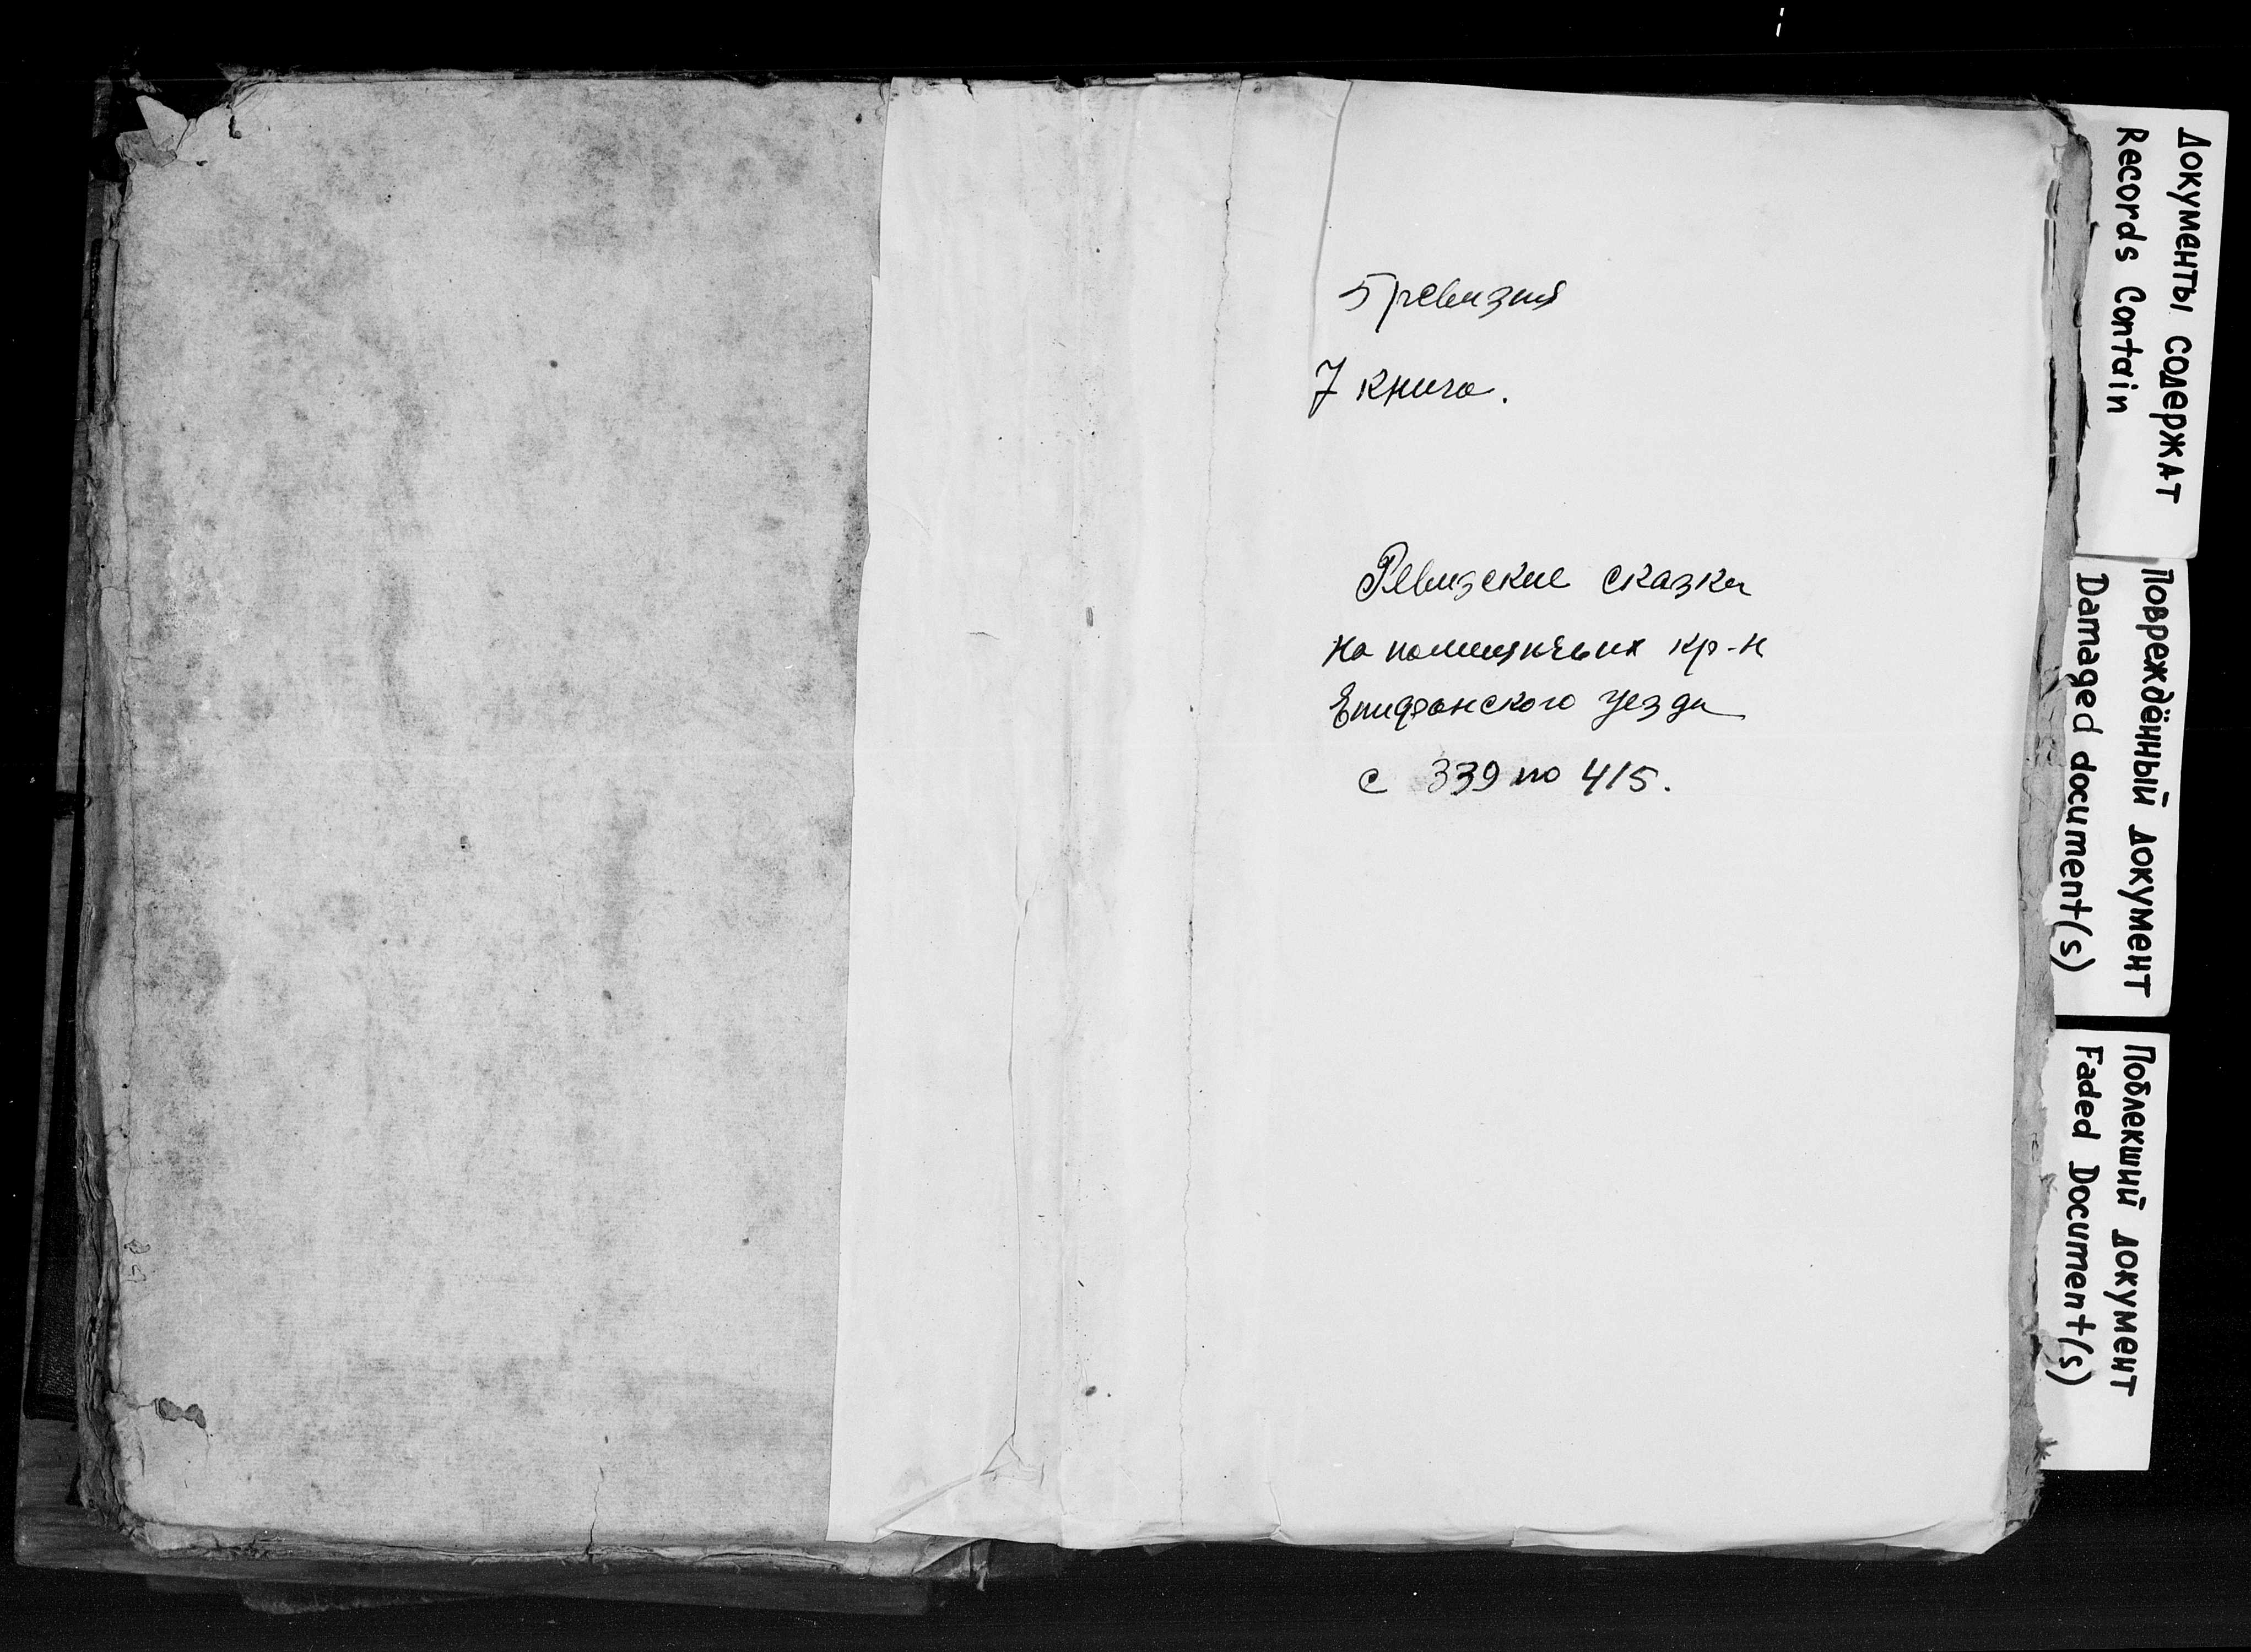 5 ревизия
7 книга.
Ревизские сказки
на помещичьих кр-н
Епифанского уезда
с 339 по 415.
Документы содержат
Records Contain
Повреждённый документ
Damaged document(s)
Поблекший документ
Faded Document(s)